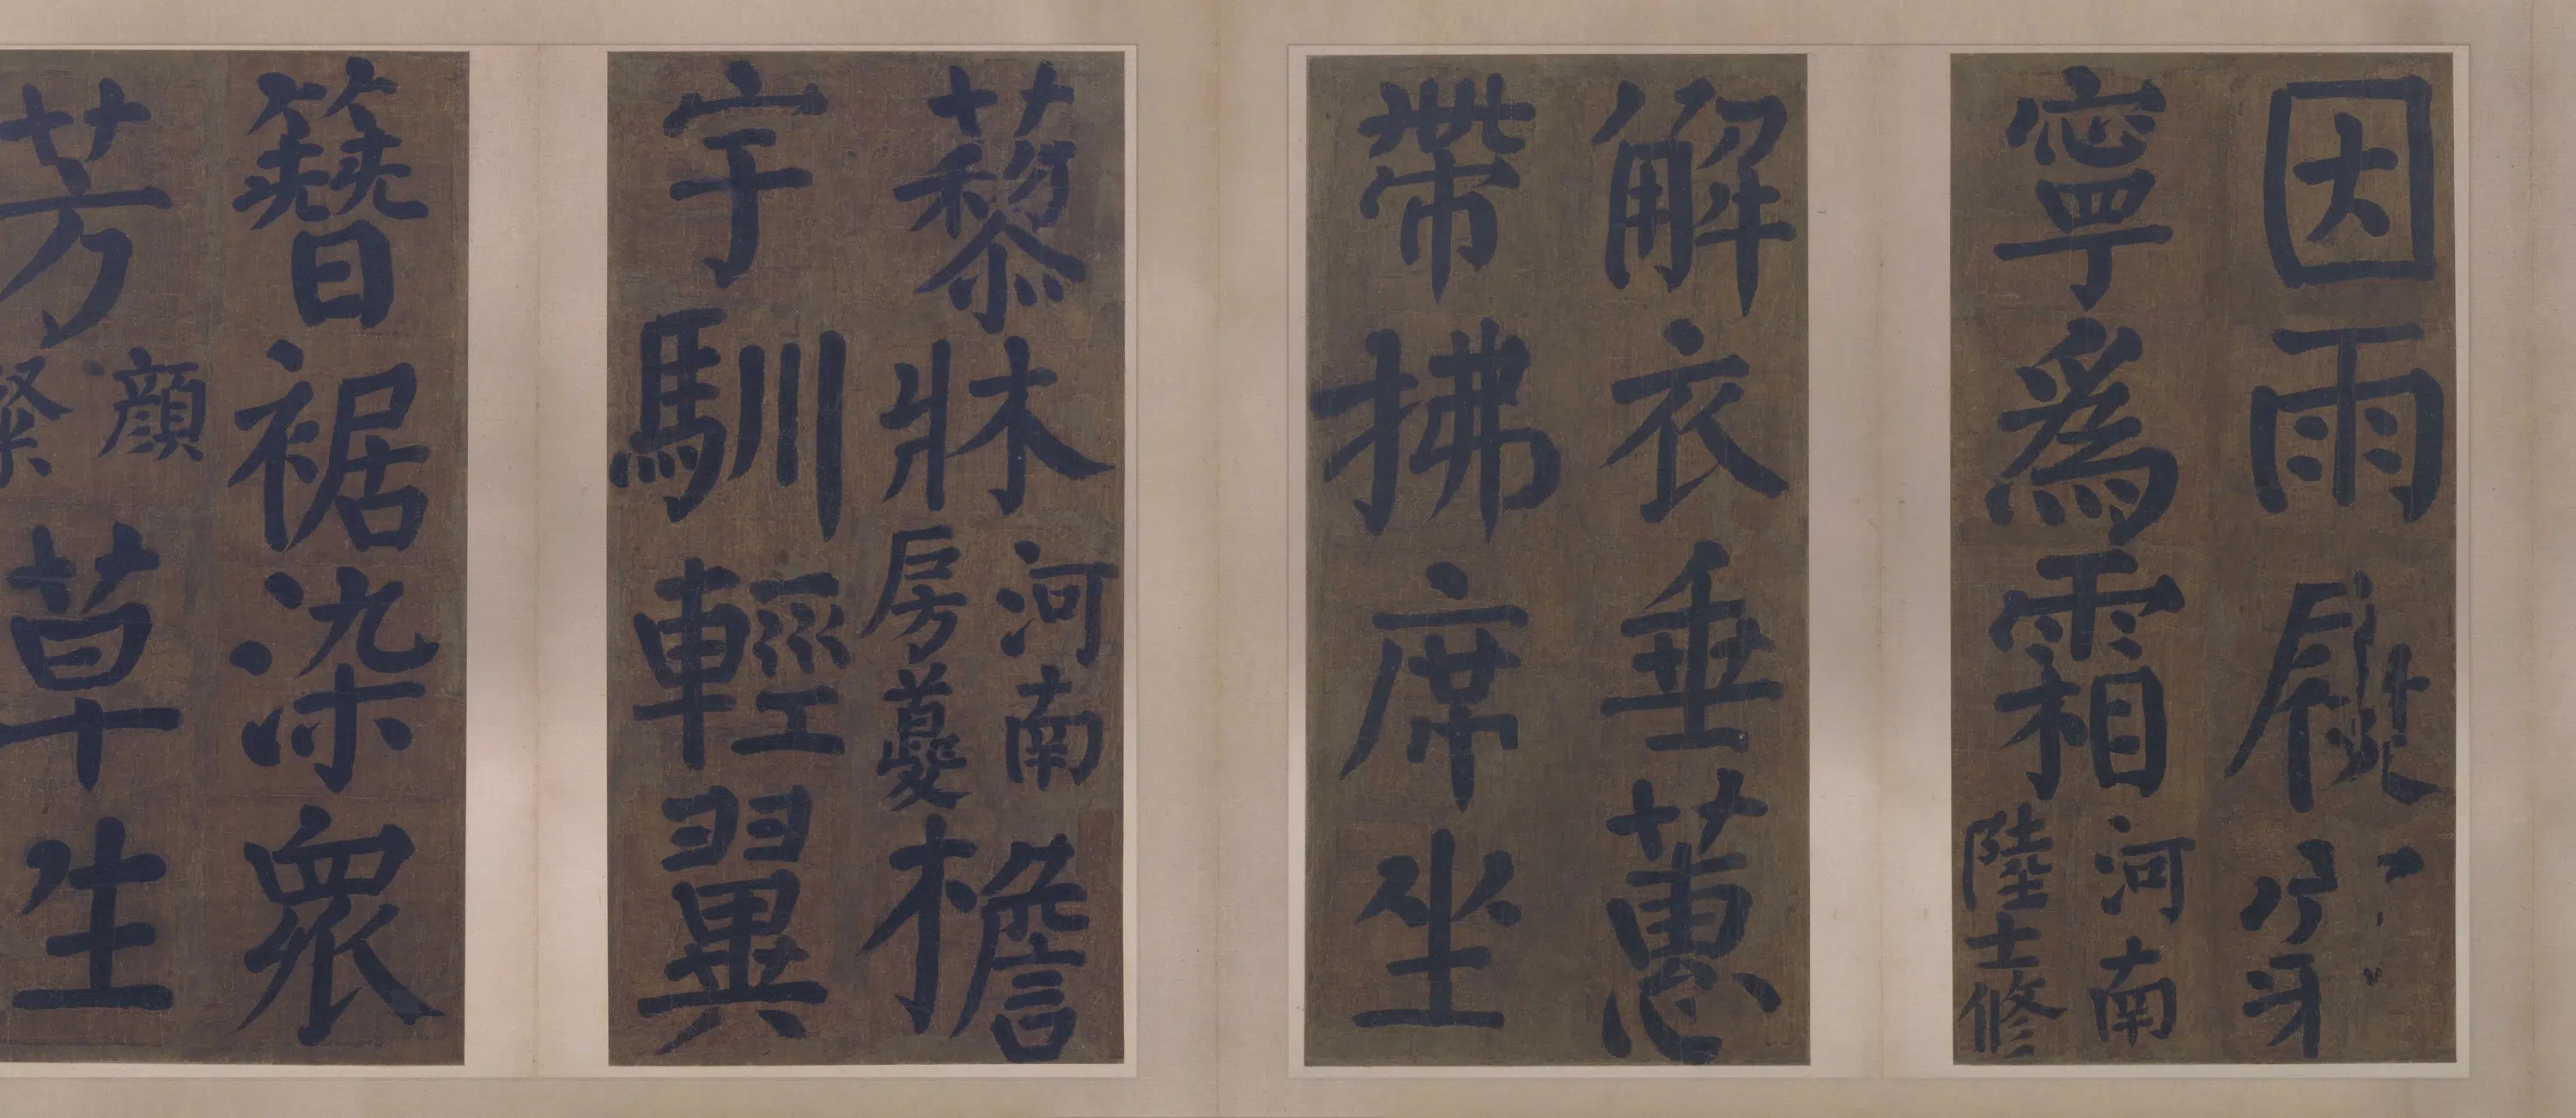 因雨
寧爲霜河南陸士修
解衣垂蕙
帶拂席坐
藜牀河南房夔檐
宇馴輕翼
簪裾染眾
芳顏粲草生